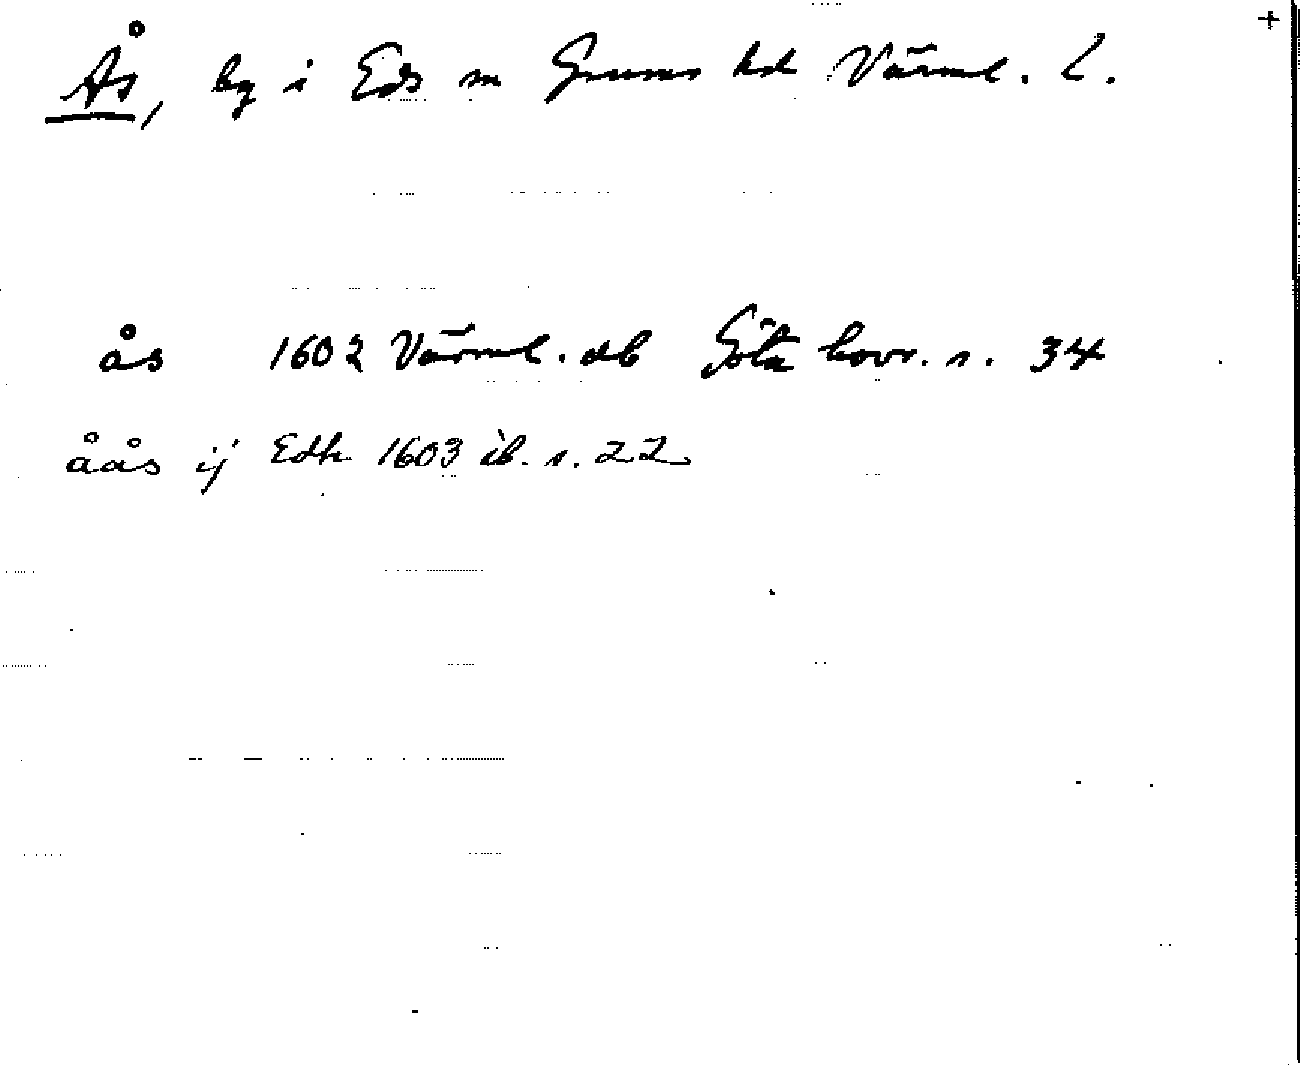 +
Ås, by i Eds sn Grums hd Värml. L.
ås 1602 Värml. db Göta hovr. s. 34
åås ij Edh 1603 ib. s. 22